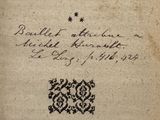 Baillet attribue a
Michel Hurault.
Le Long, p. 416, 424